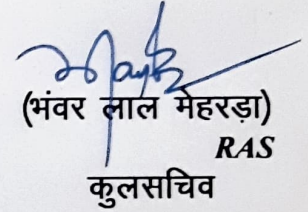 (भंवर लाल मेहरड़ा)
RAS
कुलसचिव